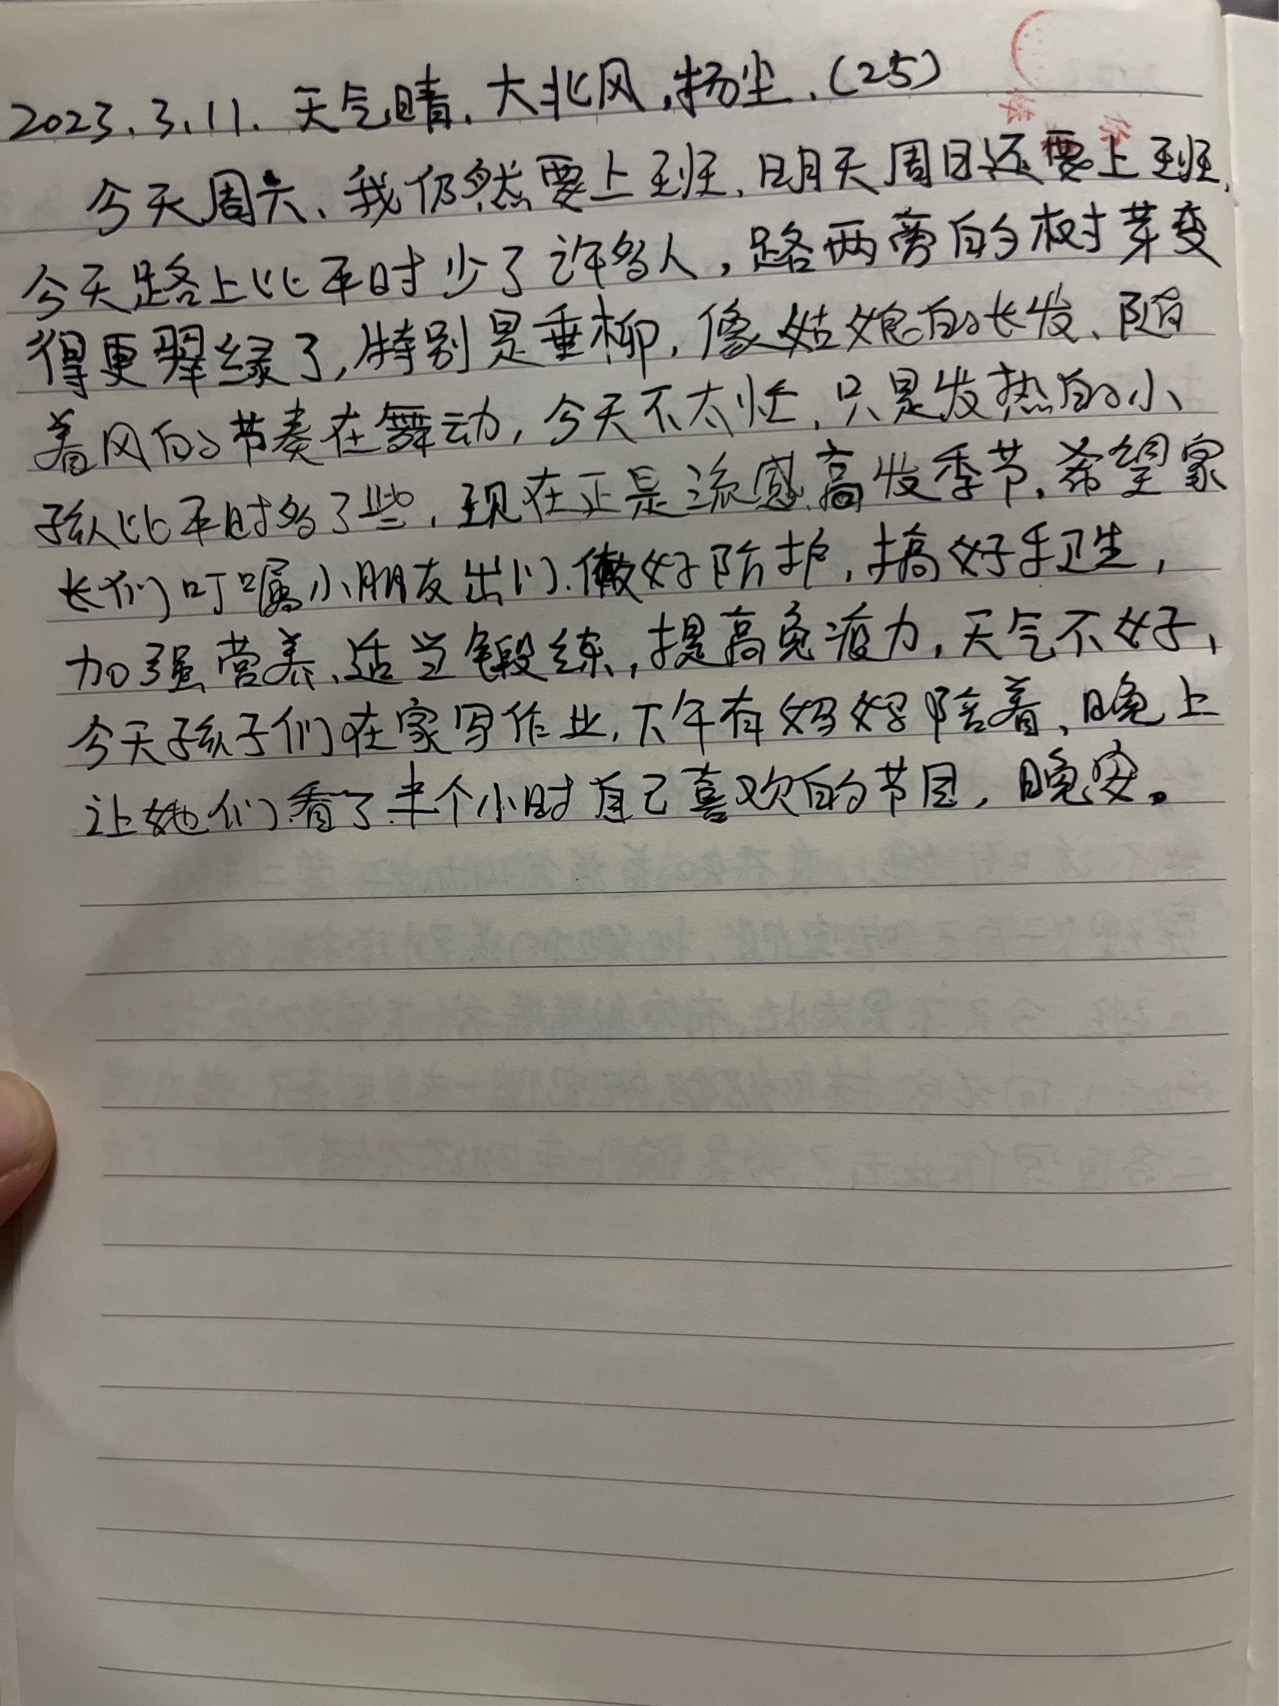 2023.3.11.天气晴.大北风,扬尘.(25)
今天周六、我仍然要上班.明天周日还要上班.
今天路上比平时少了许多人,路两旁的树芽变
得更翠绿了,特别是垂柳.像姑娘的长发、随
着风的节奏在舞动,今天不太忙.只是发热的小
孩比平时多了些.现在正是流感高发季节.希望家
长们叮嘱小朋友出门.做好防护,搞好手卫生,
加强营养、适当锻练,提高免疫力,天气不好,
今天孩子们在家写作业,下午有妈妈陪着、晚上
让她们看了半个小时自己喜欢的节目,晚安。